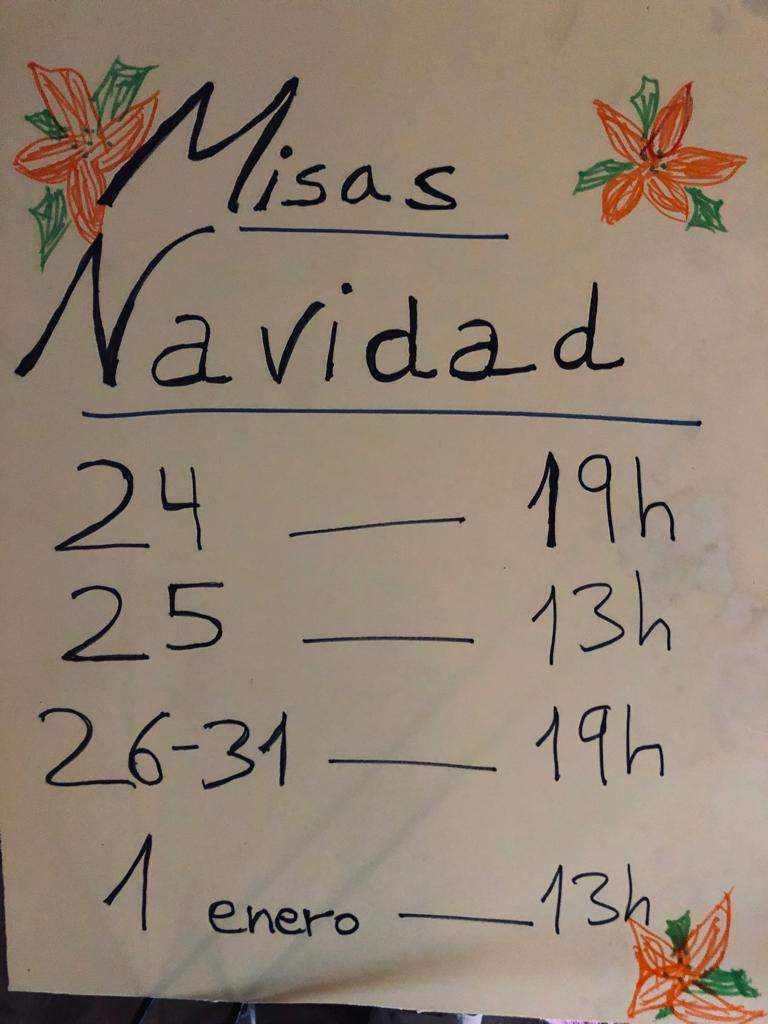 Misas
Navidad
24 — 19h
25 — 13h
26-31 — 19h
1 enero — 13h